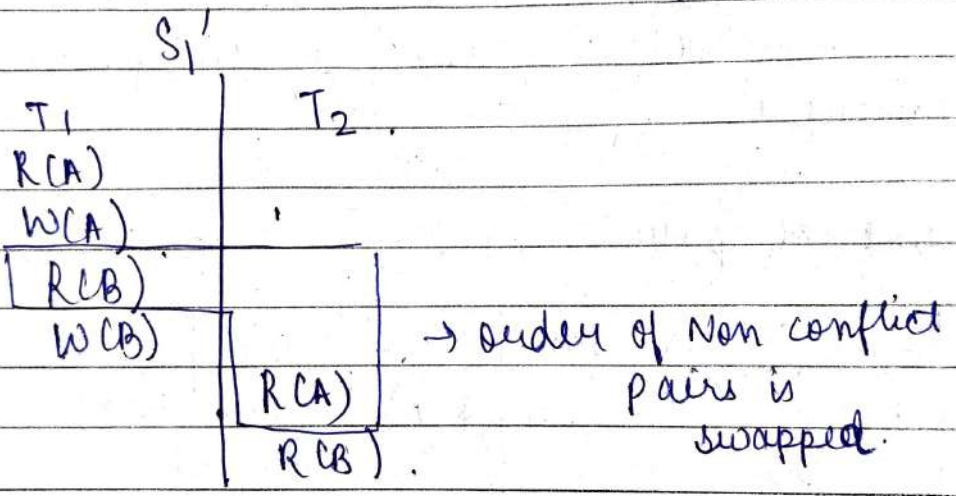 S₁'
T₁ T₂.
R(A)
W(A)
R(B)
W(B) → order of Non conflict
R(A) pairs is
swapped.
R(B).